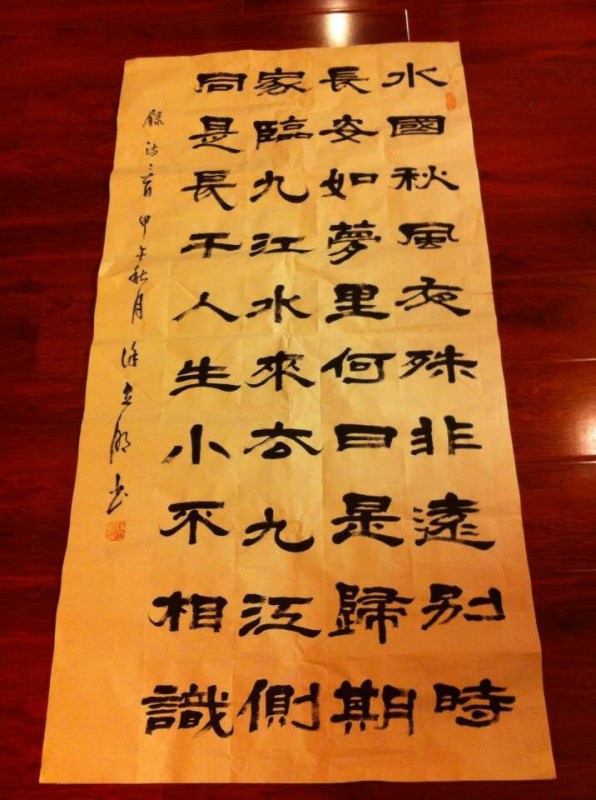 水國秋風夜殊非遠別時
長安如夢里何日是歸期
家臨九江水來去九江側
同是長干人生小不相識
錄詩二首 甲午秋月 徐 書